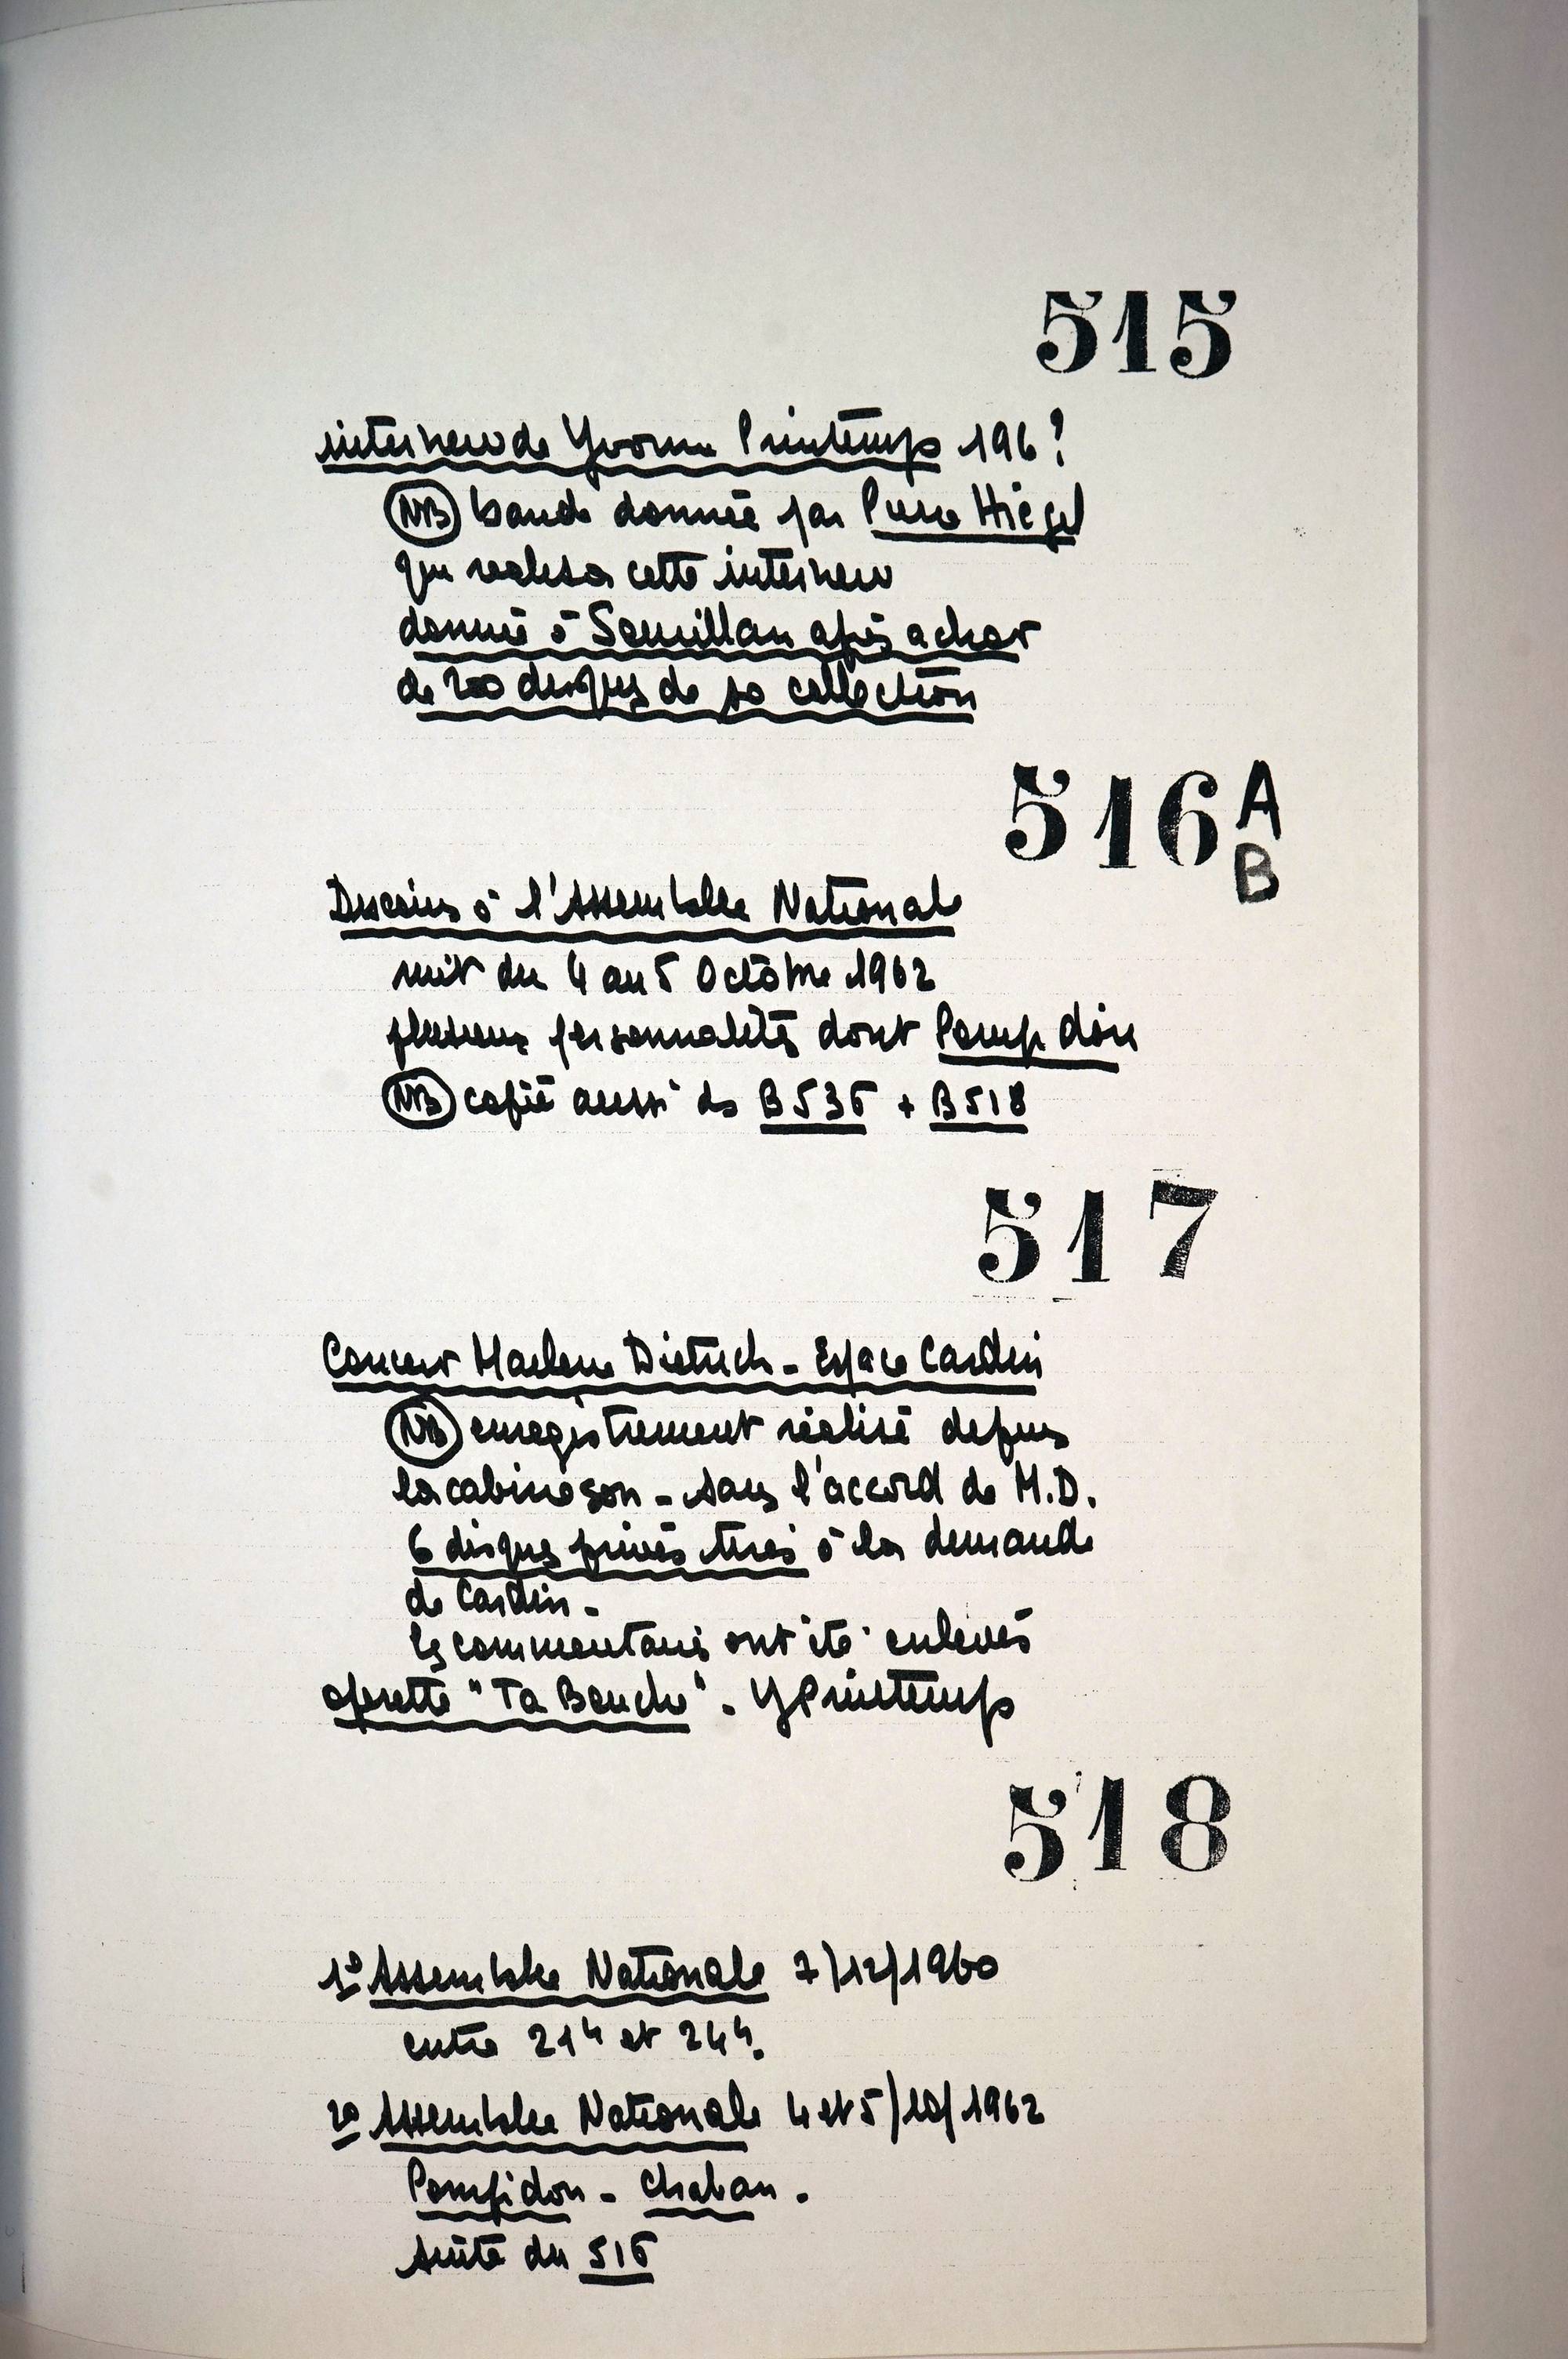 515
interview de Yvonne Printemps 196?
NB bande donnée par Pierre Hiégel
qui realisa cette interview
donnée à Semillan après achat
de 200 disques de sa collection
516 A
B
Discours à l'Assemblée Nationale
nuit du 4 au 5 Octobre 1962
plusieurs personnalités dont Pompidou
NB copié aussi ds B536 + B518
517
Concert Marlene Dietrich - Espace Cardin
NB enregistrement réalisé depuis
la cabine son - sans l'accord de M.D.
6 disques privés tirés à la demande
de Cardin -
les commentaires ont été enlevés
operette "Ta Bouche" - Y Printemps
518
1º Assemblée Nationale 7/12/1960
entre 21h et 24h.
2º Assemblée Nationale 4 et 5/10/1962
Pompidou - Chaban.
suite du 516